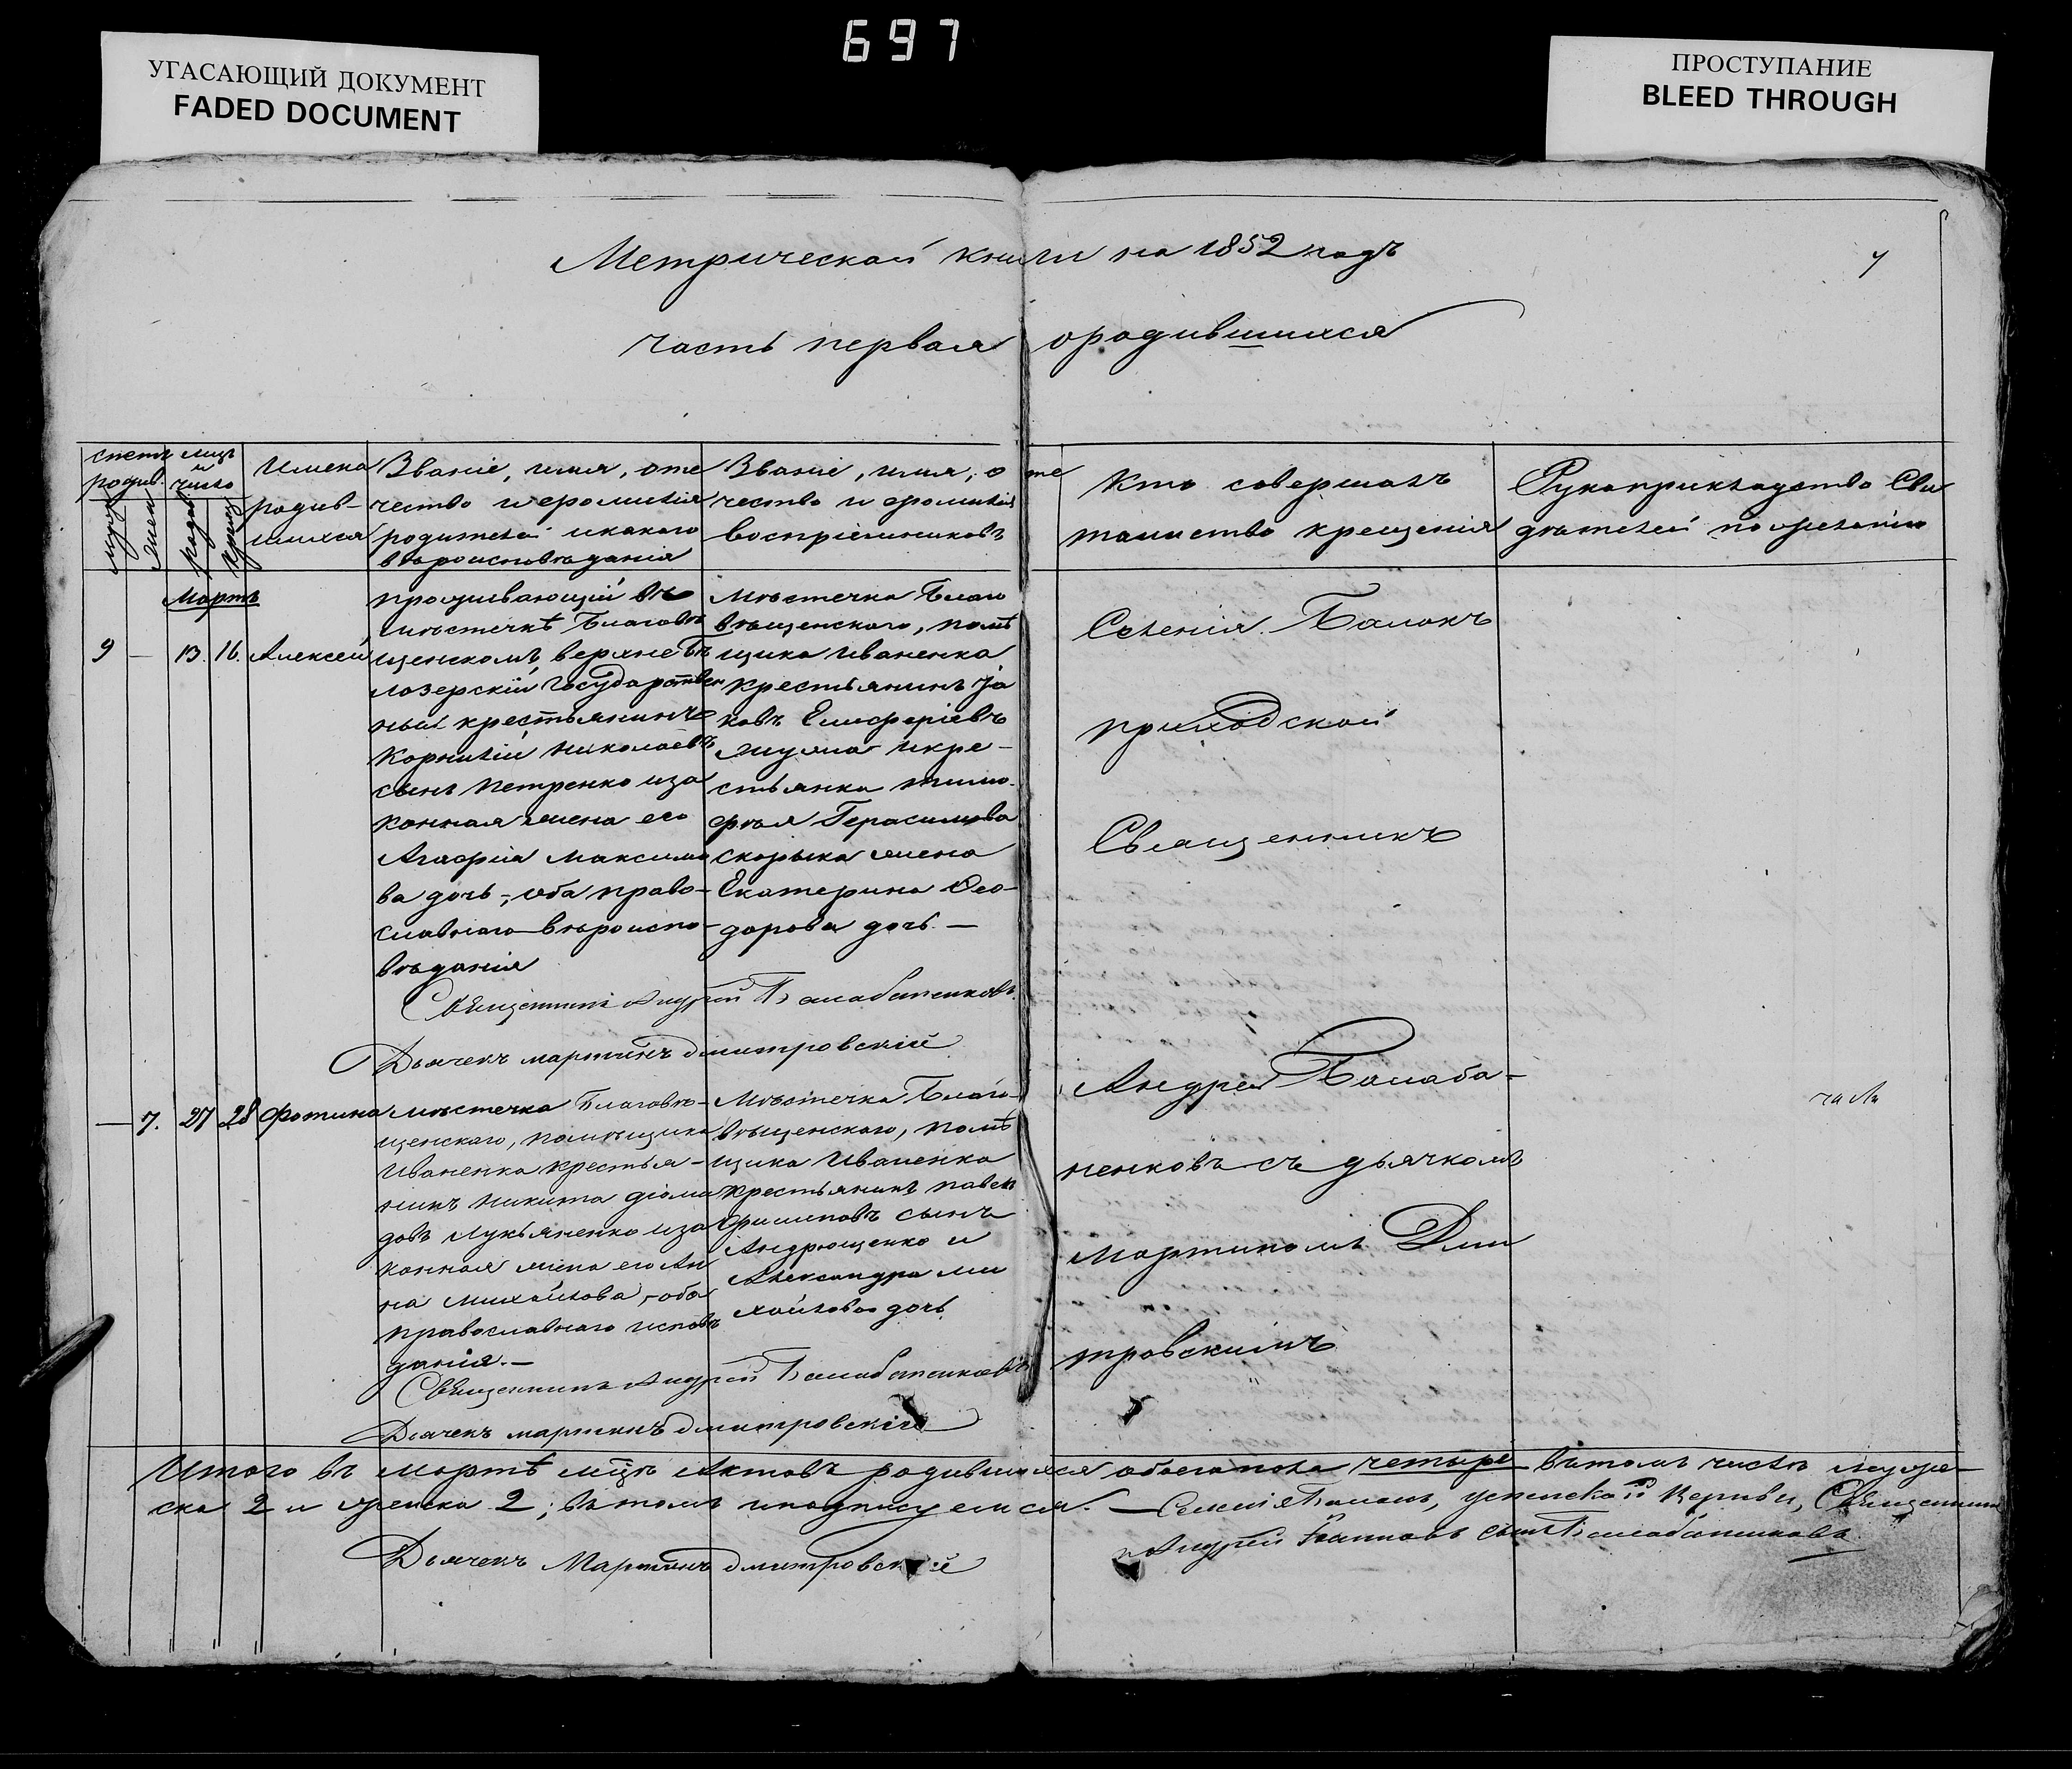 697
УГАСАЮЩИЙ ДОКУМЕНТ
FADED DOCUMENT
ПРОСТУПАНИЕ
BLEED THROUGH
Метрической книги на 1852 годъ
часть первая о родившихся
счетъ родив.
муж.
женс.
мцъ и число
рожд.
крещ.
Имена
родив-
шихся
Званіе, имя, оте
чество и фомилія
родителей и какого
вѣроисповѣданія
Званіе, имя, оте
чество и фомилія
воспріемниковъ
Кто совершалъ
таинство крещенія
Рукоприкладство Сви
дѣтелей по желанію
Мартъ
9 — 13. 16. Алексей
проживающій въ
мѣстечкѣ Благовѣ
щенскомъ, верхнебѣ
лозерскій государствен
ный крестьянинъ
Корнилій Николаевъ
сынъ Петренко и за
конная жена его
Агафія Максимо
ва дочь, оба право-
славнаго вѣроиспо-
вѣданія
мѣстечка Благо
вѣщенского, помѣ
щика Иваненка
крестьянинъ Іа
ковъ Елисферіевъ
и кре-
стьянка Тимо
фѣя Герасимова
Скорыка жена
Екатерина Ѳео-
дорова дочь. —
Священникъ Андрей Балабаненковъ
Дьячекъ мартинъ дмитровскій
— 7. 27 28 Фотина
мѣстечка Благовѣ-
щенскаго, помѣщика
Иваненка крестья-
нинъ Никита діоми
довъ Лукьяненко и за
конная жена его Ан
на Михайлова, оба
православнаго исповѣ
данія. —
Мѣстечка Благо-
вѣщенскаго, помѣ
щика Иваненка
крестьянинъ павелъ
Филиповъ сынъ
Андрющенко и
Александра Ми
хайлова дочь
Священникъ Андрей Балабаненковъ
Дьячекъ мартинъ дмитровскій
Селенія Балокъ
приходской
Священникъ
Андрей Балаба-
ненковъ съ дьячкомъ
Мартиномъ Дми
тровскимъ
Итого въ Мартѣ мцѣ Актовъ родившихся обоего пола четыре въ томъ числѣ мужес-
ска 2 и женска 2; въ томъ и подписуемся. — Селенія Балокъ, успенской Церкви, Священникъ
Андрей Іоанновъ сынъ Балабаненковъ
Дьячекъ Мартинъ дмитровскій